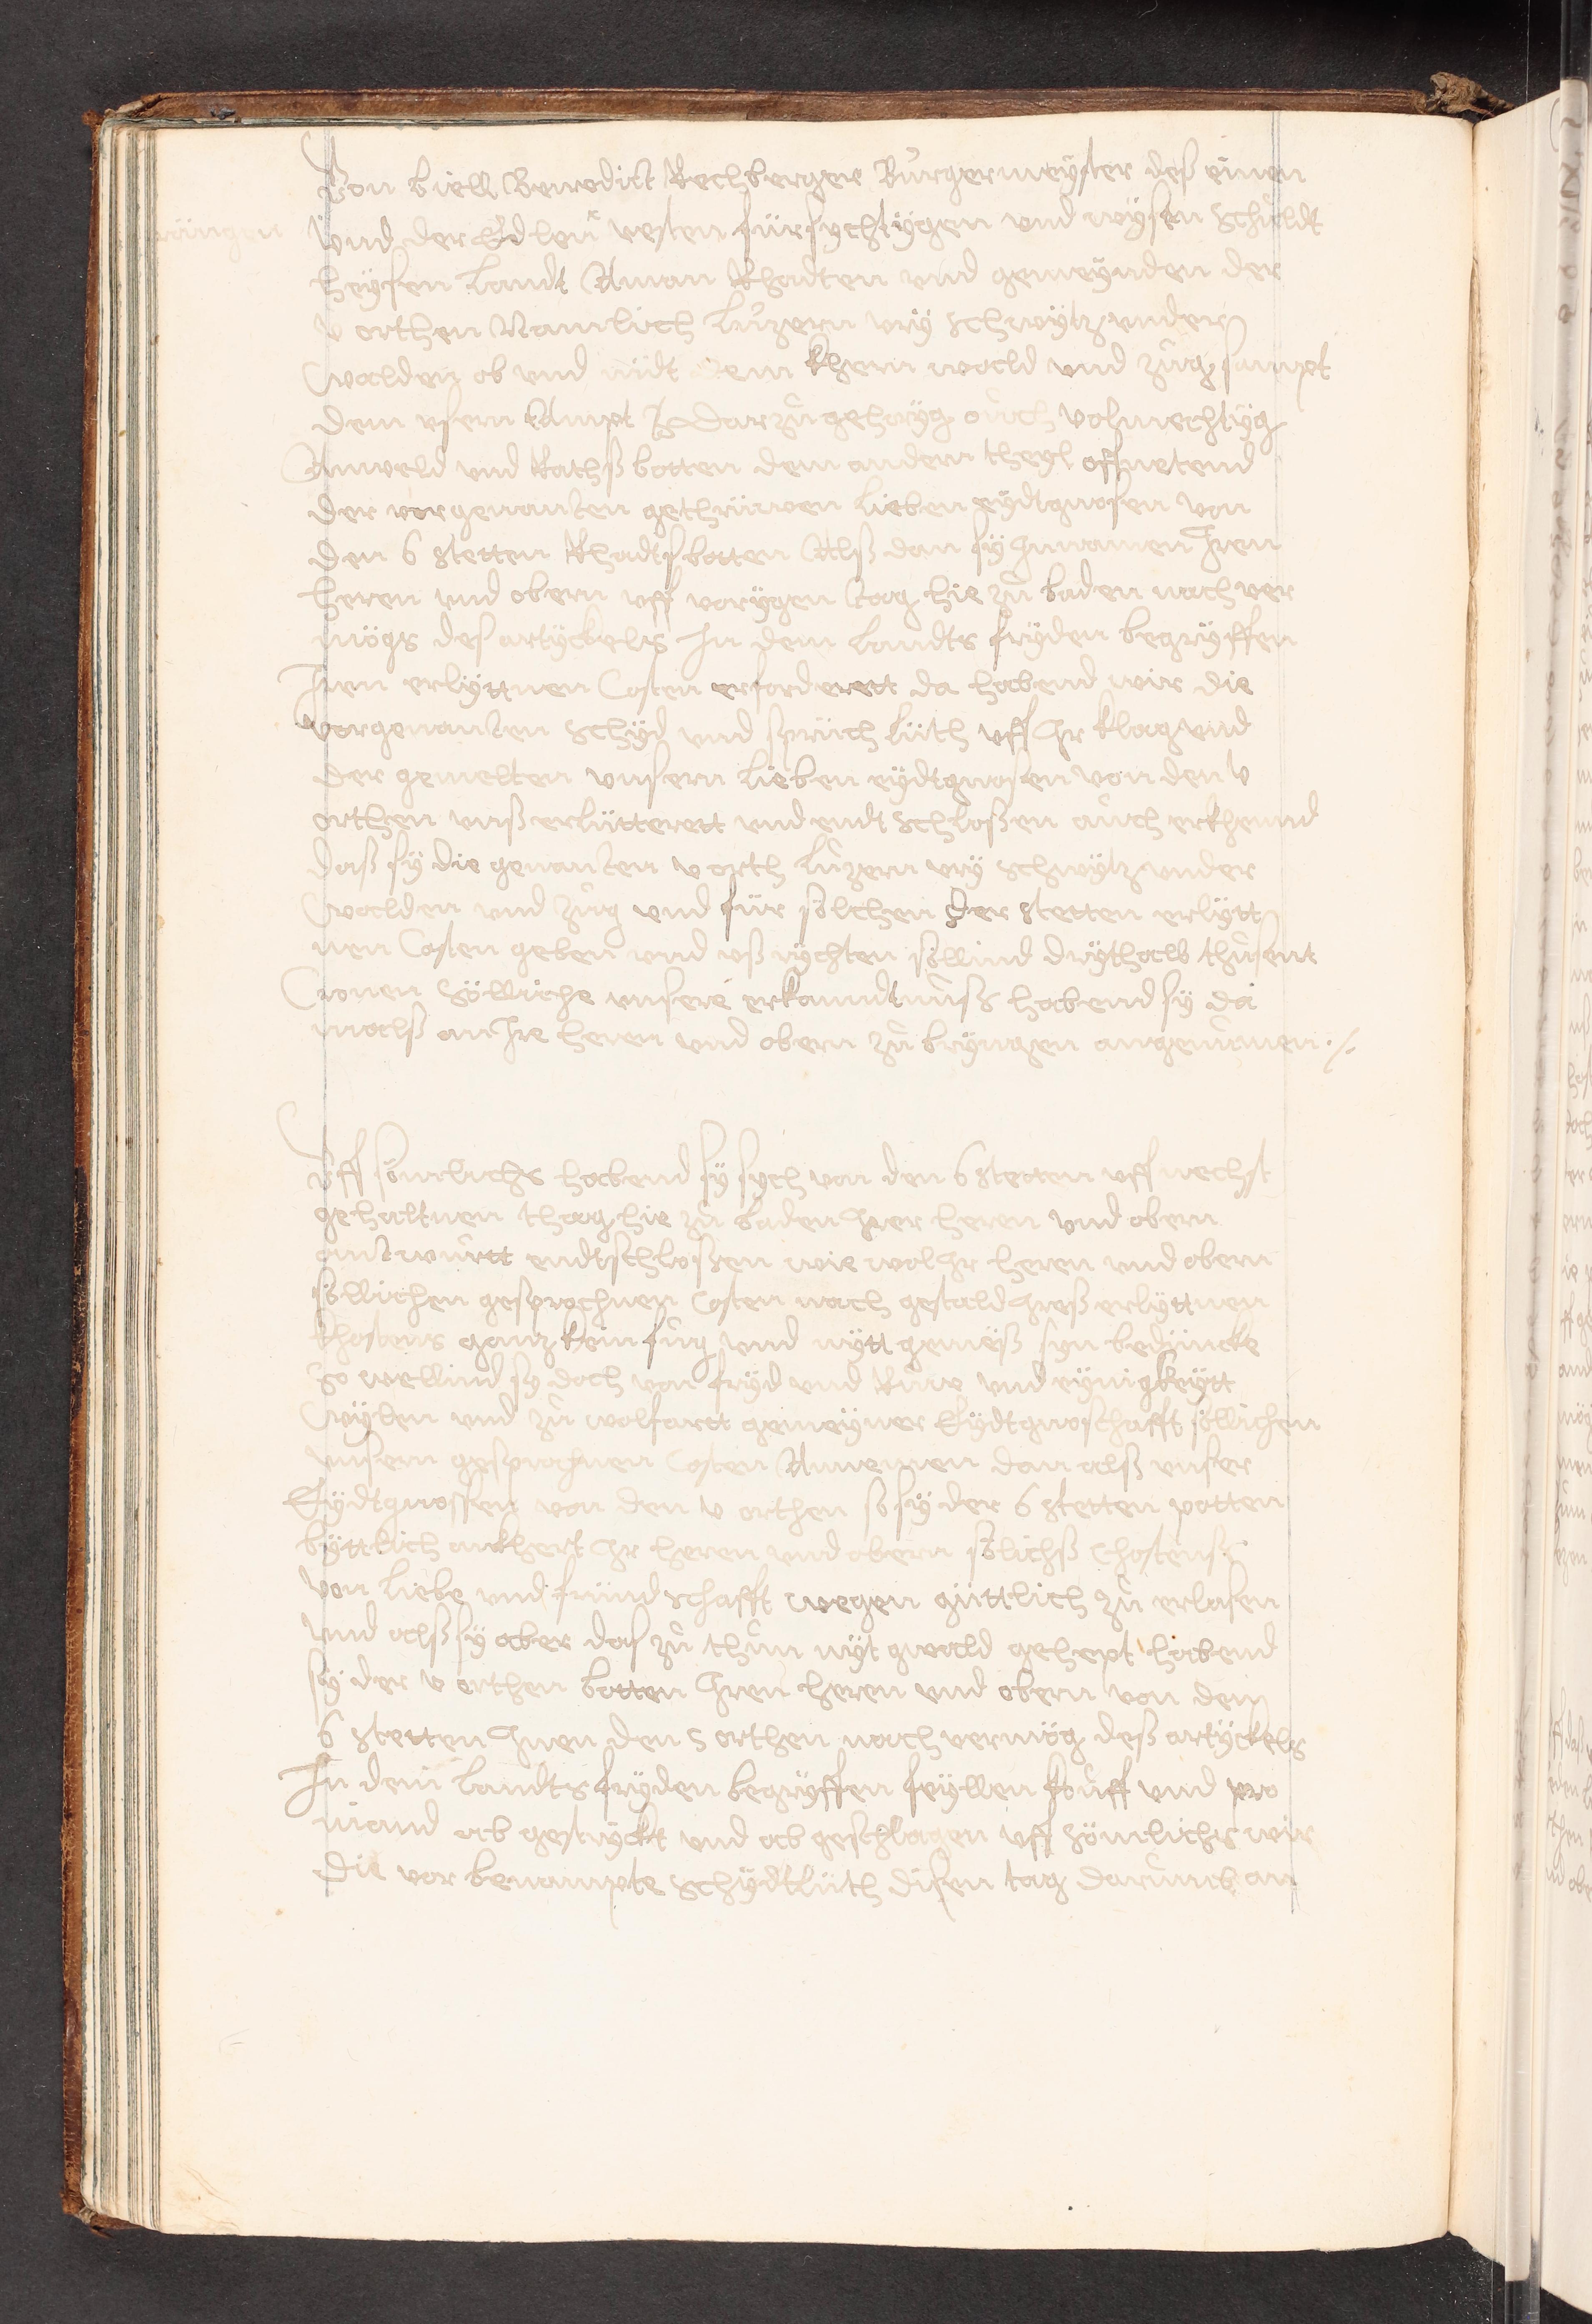 Von biell Benedict Rechberger Bůrgermeÿster deß einen
Vnd der Edlen vesten fürsychtÿgen vnd wÿsen schůldt
heÿsen landt Aman Rhadten vnd gemeÿnden der
v orthen Namlich lůzern vrÿ schwÿtz vnder
walden ob vnd nidt dem Khern wald vnd zůg sampt
dem vsern Ampt so dar zů gehörÿg oůch volmechtÿg
Anweld vnd Rathßbotten dem andern theyl offnetend
der vorgenanten gethrüwen lieben eÿdtgnosen von
den 6 stetten Rhadtsbotten Alß dan sÿ Jnnamen Jren
heren vnd obern vff vorÿgen tag hie zů baden nach ver
mögs des artÿckels Jn dem landts frÿden begrÿffen
Jren erlÿttnen Costen erforderett da habend wir die
vorgenanten schÿd vnd sprüch lüth vff Jr klag vnd
der gemelten vnsern lieben eÿdtgnosen von den v
orthen vnß erlütterett vnd endtschloßen aůch erkhennd
daß sÿ die genanten v orth lůzern vrÿ schwÿtz vnder
walden vnd zůg vnd für solchen der stetten erlÿtt
nen Costen geben vnd vß rÿchten söllind drÿthalb thůsent
Cronen söliche vnsere erkanndtnůß habend sÿ da
malß an Jre heren vnd obern zů brÿngen angenůmen ·/·
Vff sömlichs habend sÿ sych von den 6 stetten vff nechst
gehaltnen thag hie zů baden Jrer heren vnd obern
antwůrtt endtschloßen wie wol Jr heren vnd obern
söllichen gesprochnen Costen nach gestald Jreß erlÿttnen
khostens ganz kein fůg vnd nÿtt gemeß syn bedüncke
So wellind sy doch von frÿd vnd Růw vnd eÿnigkeÿtt
wÿllen vnd zů wolfartt gemeÿner Eÿdtgnoschafft söllichen
vnsern gesprochnen Costen Annemen dan alß vnser
Eÿdtgnossen von den v orthen so sÿ der 6 stetten potten
bÿttlich ankhert Jr heren vnd obern sölichß Chostenß
von liebe vnd fründschafft wegen güttlich zů erlasen
vnd alß sÿ aber das zů thůn nÿt gwald gehept habend
sÿ der v orthen botten Jren heren vnd obern von den
6 stetten Jnen den 5 orthen nach vermög deß artÿckels
Jn dem landts frÿden begrÿffen feÿllen koůff vnd pro
niand ab gestrÿckt vnd ab geschlagen vff sömlichs wir
die vor benampte schÿdtlüth disen tag darůmb an